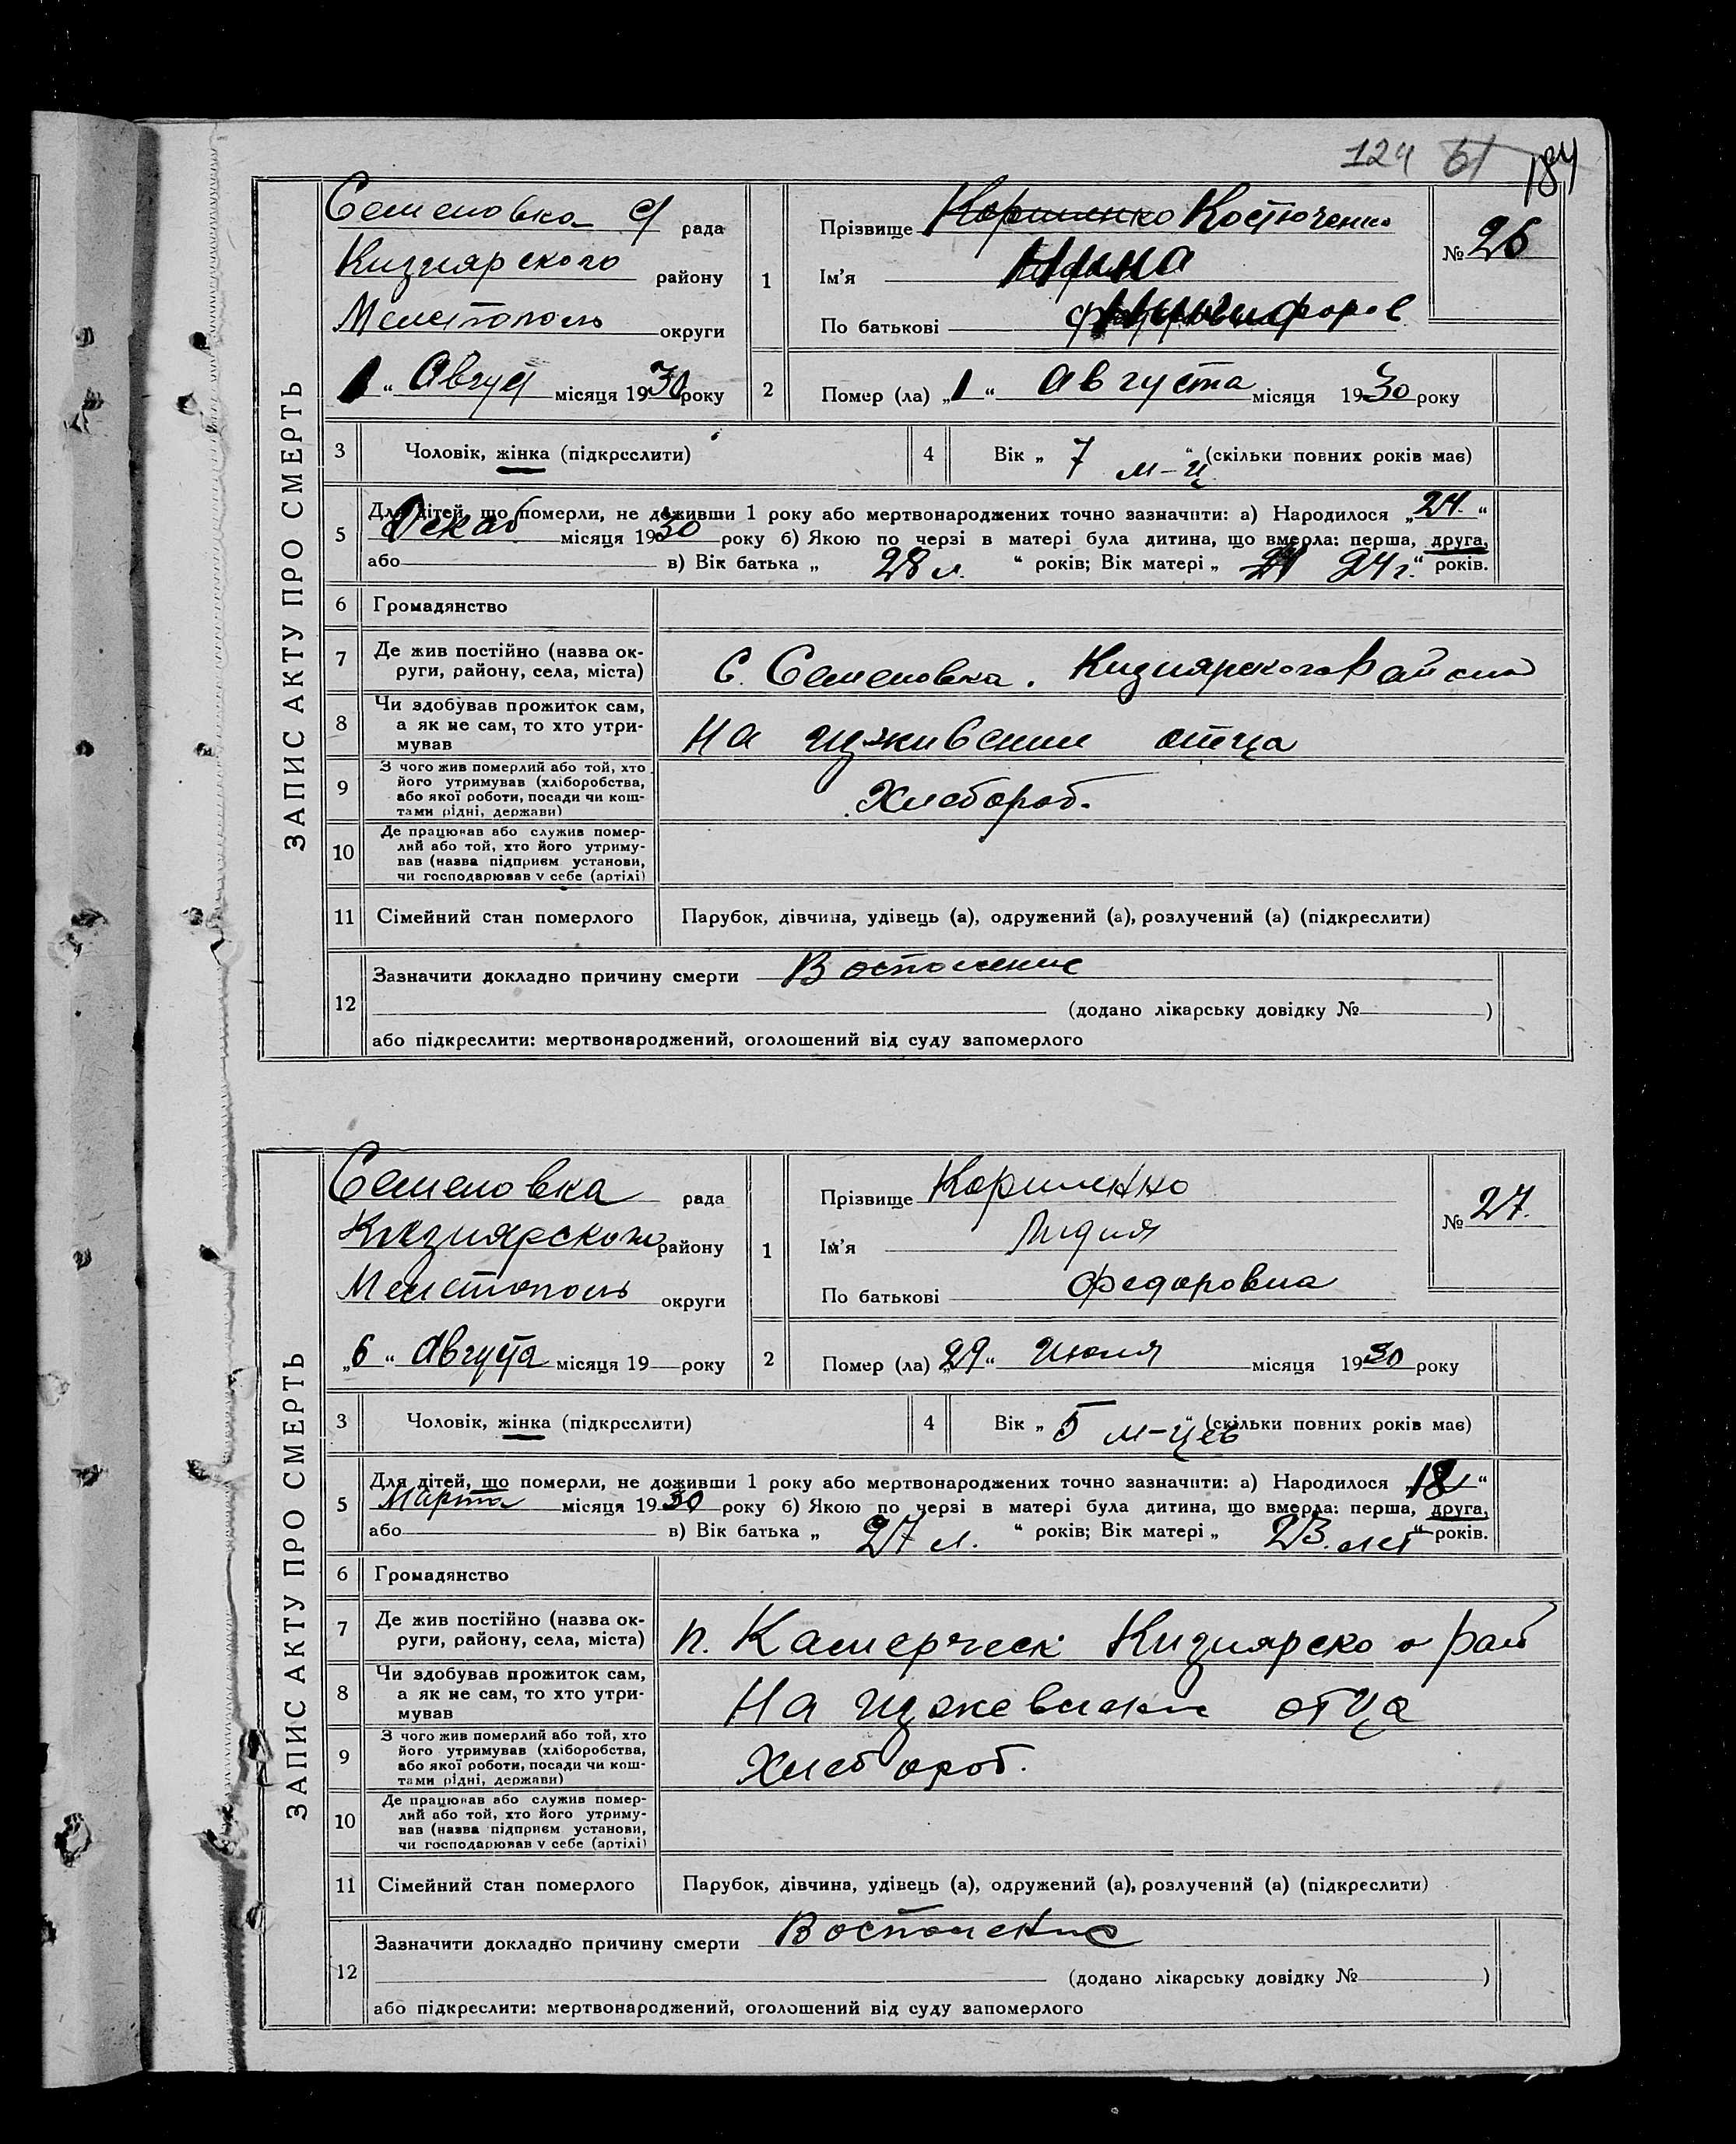 124 61 184
ЗАПИС АКТУ ПРО СМЕРТЬ
Семеновка с/ рада
Кизиярского району
Мелетополь округи
1 “ Август місяця 1930 року
1
Прізвище Коршенко Костюченко
Ім'я Нина
По батькові Никифоров
№ 26
2 Помер (ла) „1“ Августа місяця 1930 року
3 Чоловік, жінка (підкреслити)
4 Вік „ 7 м-ц “ (скільки повних років має)
5 Для дітей, що померли, не доживши 1 року або мертвонароджених точно зазначити: а) Народилося „24.“
Декаб місяця 1930 року б) Якою по черзі в матері була дитина, що вмерла: перша, друга,
або в) Вік батька „ 28 л. “ років; Вік матері „ 24 24 г. “ років.
6 Громадянство
7 Де жив постійно (назва ок-
руги, району, села, міста)
С. Семеновка. Кизиярского Района
8 Чи здобував прожиток сам,
а як не сам, то хто утри-
мував
На иждивении отца
9 З чого жив померлий або той, хто
його утримував (хліборобства,
або якої роботи, посади чи кош-
тами рідні, держави)
Хлебороб.
10 Де працював або служив помер-
лий або той, хто його утриму-
вав (назва підприєм установи,
чи господарював у себе (артілі)
11 Сімейний стан померлого Парубок, дівчина, удівець (а), одружений (а), розлучений (а) (підкреслити)
12 Зазначити докладно причину смерти Восполение
(додано лікарську довідку № )
або підкреслити: мертвонароджений, оголошений від суду запомерлого
ЗАПИС АКТУ ПРО СМЕРТЬ
Семеновка рада
Кизиярского району
Мелетополь округи
„6“ Августа місяця 19 року
1
Прізвище Коршенко
Ім'я Лидия
По батькові Федоровна
№ 27.
2 Помер (ла) „29“ Июля місяця 1930 року
3 Чоловік, жінка (підкреслити)
4 Вік „ 5 м-цев “ (скільки повних років має)
5 Для дітей, що померли, не доживши 1 року або мертвонароджених точно зазначити: а) Народилося „18“
Марта місяця 1930 року б) Якою по черзі в матері була дитина, що вмерла: перша, друга,
або в) Вік батька „ 27 л. “ років; Вік матері „ 23. лет “ років.
6 Громадянство
7 Де жив постійно (назва ок-
руги, району, села, міста)
п. Камерческ Кизиярского рай
8 Чи здобував прожиток сам,
а як не сам, то хто утри-
мував
На иждевении отца
9 З чого жив померлий або той, хто
його утримував (хліборобства,
або якої роботи, посади чи кош-
тами рідні, держави)
Хлебороб.
10 Де працював або служив помер-
лий або той, хто його утриму-
вав (назва підприєм установи,
чи господарював у себе (артілі)
11 Сімейний стан померлого Парубок, дівчина, удівець (а), одружений (а), розлучений (а) (підкреслити)
12 Зазначити докладно причину смерти Восполение
(додано лікарську довідку № )
або підкреслити: мертвонароджений, оголошений від суду запомерлого